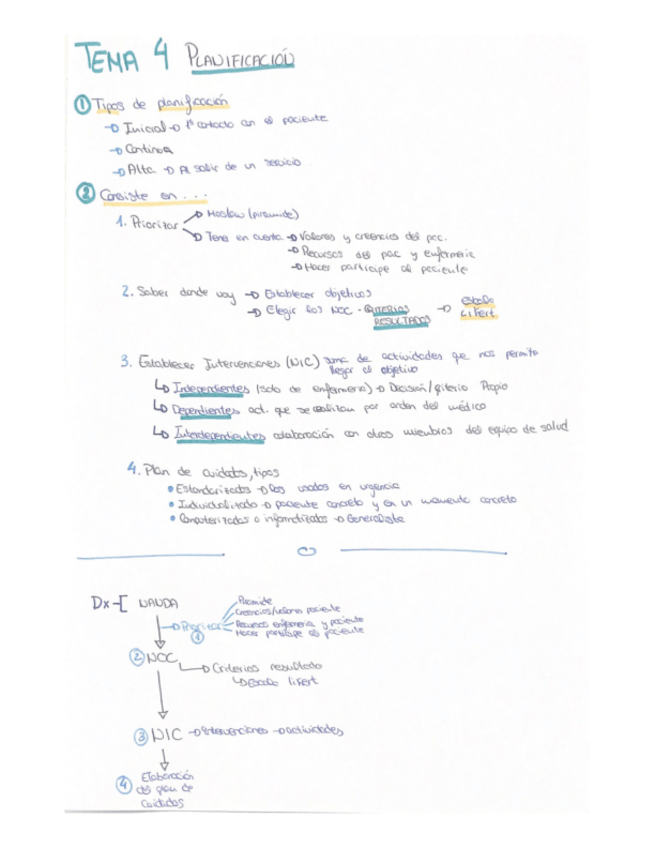 TEMA 4 PLANIFICACIÓN
① Tipos de planificación
→ Inicial → 1º contacto con el paciente
→ Continua
→ Alta → Al salir de un servicio
② Consiste en...
1. Priorizar → Maslow (piramide)
→ Tener en cuenta → Valores y creencias del pac.
→ Recursos del pac y enfermeria
→ Hacer participe al paciente
2. Saber donde voy → Establecer objetivos
→ Elegir los NOC - CRITERIOS RESULTADOS → Escala Lifert.
3. Establecer Intervenciones (NIC) suma de actividades que nos permite
llegar al objetivo
↳ Independientes (solo de enfermeria) → Decisión/criterio Propio
↳ Dependientes act. que se realizan por orden del médico
↳ Interdependientes colaboración con otros miembros del equipo de salud
4. Plan de cuidados, tipos
• Estandarizados → Los usados en urgencia
• Individualizado → paciente concreto y en un momento concreto
• Computerizados o informatizados → Generalista
Dx-[ NANDA
→ Priorizar ①
Piramide
Creencias/valores paciente
Recursos enfermeria y paciente
Hacer participe al paciente
② NOC
→ Criterios resultado
↳ Escala lifert
③ NIC → intervenciones → actividades
④ Elaboración
del plan de
Cuidados